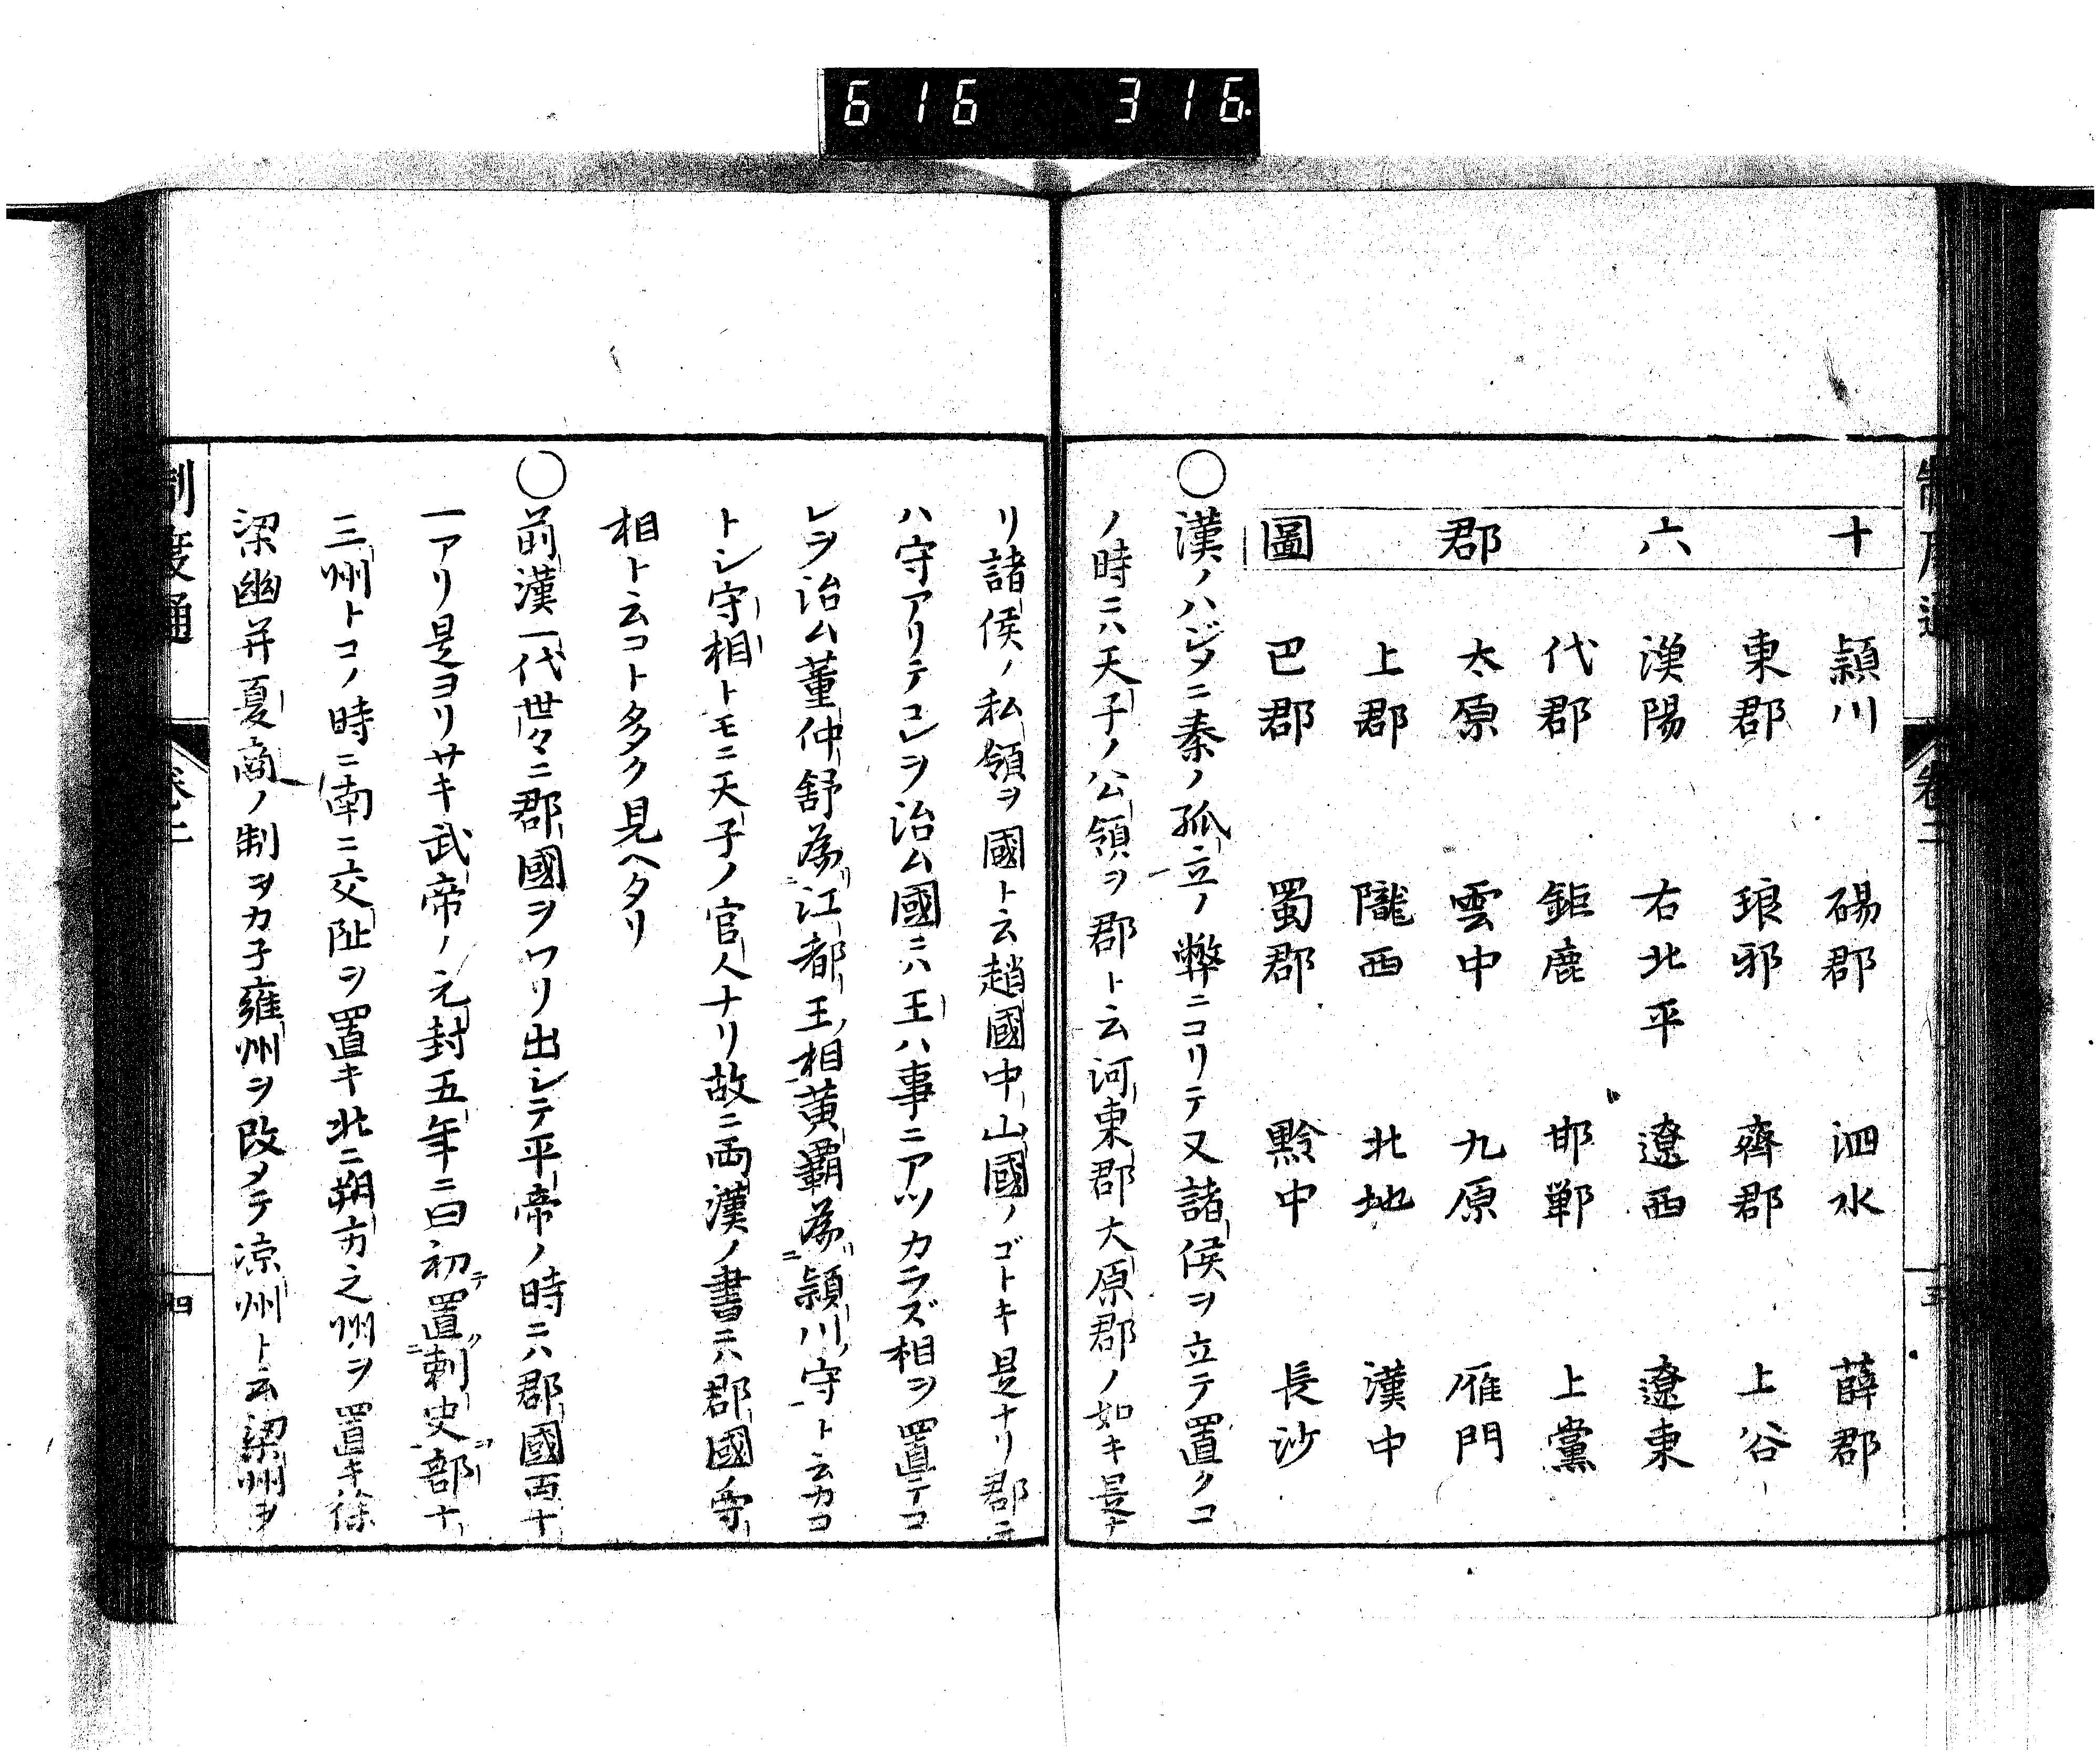 6 1 6 3 1 6.
十六郡圖
潁川 碭郡 泗水 薛郡
東郡 琅邪 齊郡 上谷
漢陽 右北平 遼西 遼東
代郡 鉅鹿 邯鄲 上黨
太原 雲中 九原 雁門
上郡 隴西 北地 漢中
巴郡 蜀郡 黔中 長沙
○漢ノハジメニ秦ノ孤立ノ弊ニコリテ又諸侯ヲ立テ置クコ
ノ時ニハ天子ノ公領ヲ郡ト云河東郡大原郡ノ如キ是ナ
リ諸侯ノ私領ヲ國ト云趙國中山國ノゴトキ是ナリ郡ニ
ハ守アリテコレヲ治ム國ニハ王ハ事ニアツカラズ相ヲ置テコ
レヲ治ム董仲舒為江都王相黄覇為潁川守ト云カコ
トシ守相トモニ天子ノ官人ナリ故ニ両漢ノ書ニハ郡國ノ守
相ト云コト多ク見ヘタリ
○前漢一代世々ニ郡國ヲワリ出シテ平帝ノ時ニハ郡國百十
一アリ是ヨリサキ武帝ノ元封五年ニ曰初テ置刺史部十
三州トコノ時ニ南ニ交阯ヲ置キ北ニ朔方之州ヲ置キ徐
梁幽并夏商ノ制ヲカ子雍州ヲ改メテ涼州ト云梁州ヲ
制度通 卷二 四
卷二 五